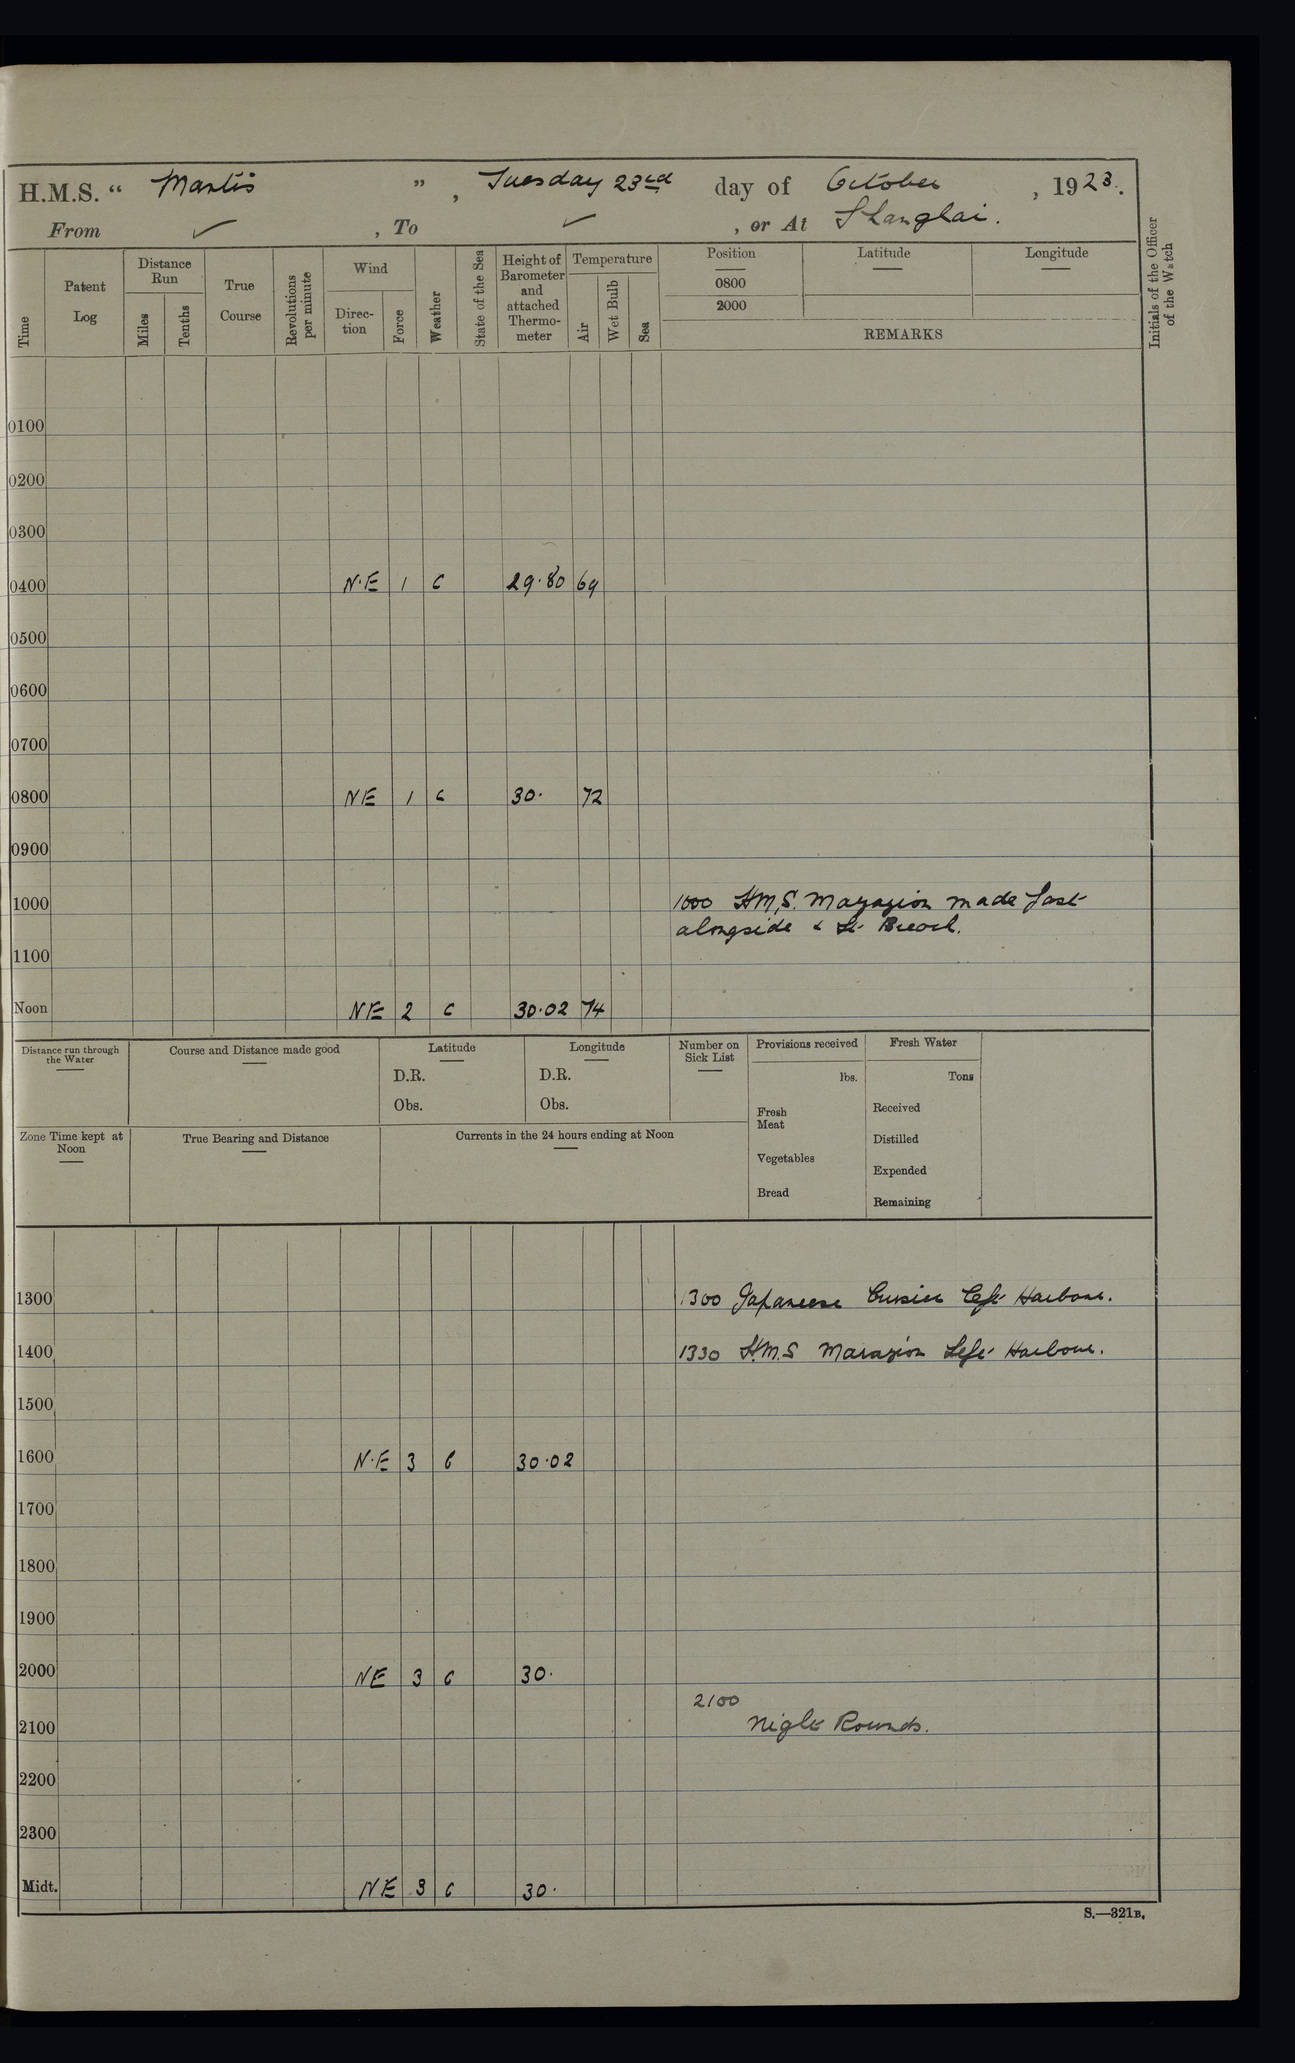 H.M.S. “ Mantis ”, Tuesday 23rd day of October, 1923.
From ✓, To ✓, or At Shanghai.
Time
Patent Log
Distance Run
Miles
Tenths
True Course
Revolutions per minute
Wind
Direction
Force
Weather
State of the Sea
Height of Barometer and attached Thermometer
Temperature
Air
Wet Bulb
Sea
Position
0800
2000
Latitude
Longitude
REMARKS
Initials of the Officer of the Watch
0100
0200
0300
0400 N.E 1 c 29.80 69
0500
0600
0700
0800 NE 1 c 30. 72
0900
1000 1000 H.M.S. Marazion made fast
alongside &
1100
Noon NE 2 c 30.02 74
Distance run through the Water
Course and Distance made good
Latitude
D.R.
Obs.
Longitude
D.R.
Obs.
Number on Sick List
Provisions received
lbs.
Fresh Meat
Vegetables
Bread
Fresh Water
Tons
Received
Distilled
Expended
Remaining
Zone Time kept at Noon
True Bearing and Distance
Currents in the 24 hours ending at Noon
1300 1300 Japaneese Cruiser Left Harbour.
1400 1330 H.M.S Marazion Left Harbour.
1500
1600 N.E 3 c 30.02
1700
1800
1900
2000 NE 3 c 30.
2100
2100 Night Rounds.
2200
2300
Midt. NE 3 c 30.
S.—321B.